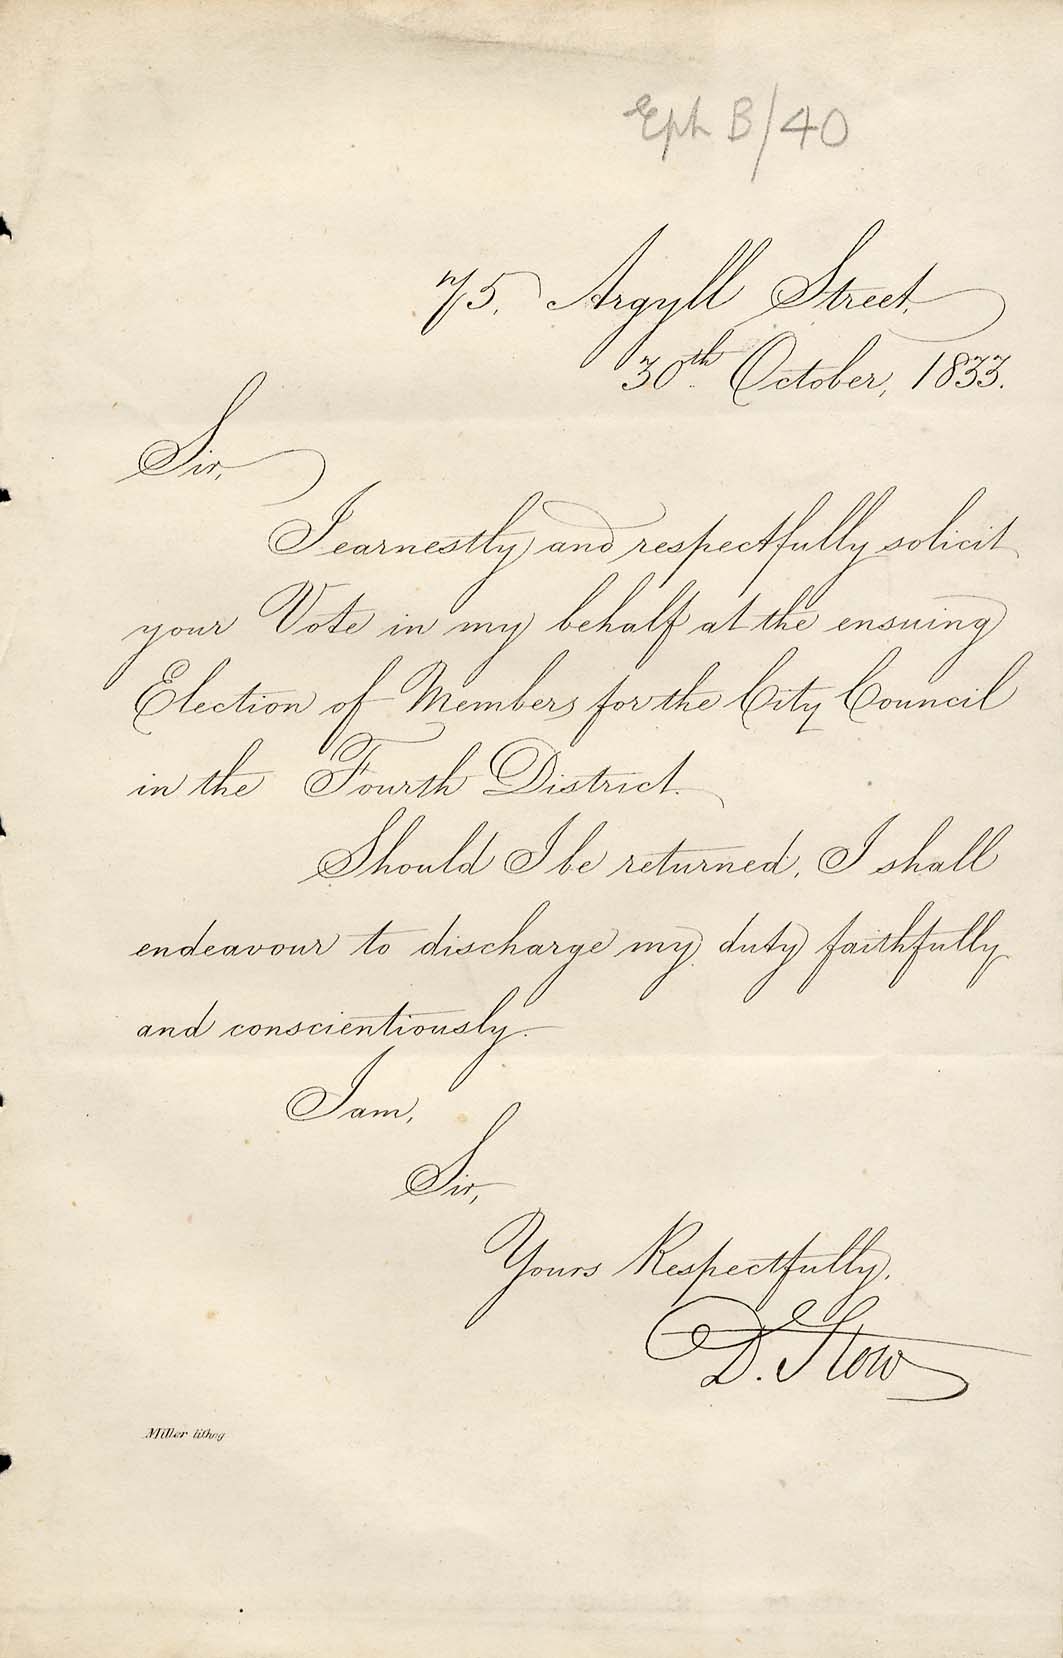 Eph B/40
75, Argyll Street,
30th October, 1833.
Sir,
I earnestly and respectfully solicit
your Vote in my behalf at the ensuing
Election of Members for the City Council
in the Fourth District.
Should I be returned, I shall
endeavour to discharge my duty faithfully
and conscientiously.
I am,
Sir,
Yours Respectfully,
D. Stow
Miller lithog